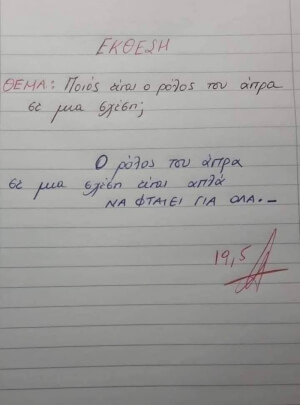 ΕΚΘΕΣΗ
ΘΕΜΑ: Ποιός είναι ο ρόλος του άντρα
σε μια σχέση;
Ο ρόλος του άντρα
σε μια σχέση είναι απλά
ΝΑ ΦΤΑΙΕΙ ΓΙΑ ΟΛΑ.-
19,5